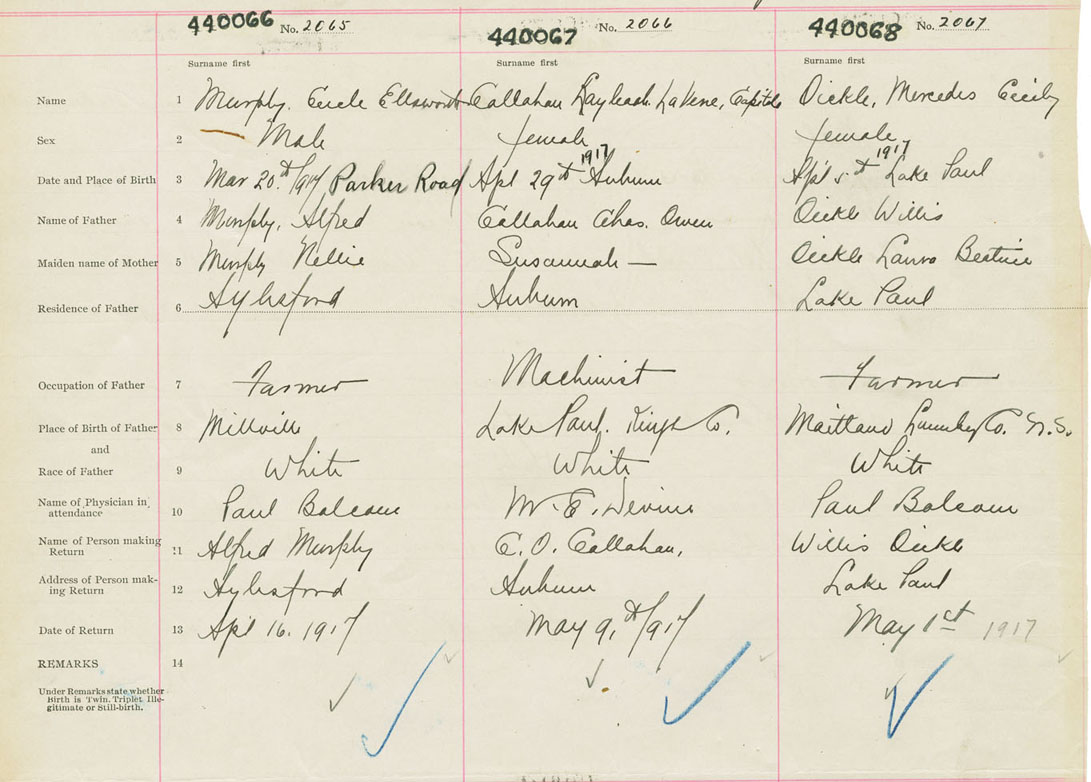 440066 No. 2065 440067 No. 2066 440068 No. 2067
Surname first Surname first Surname first
Name 1 Murphy, Ellsworth Callahan LaVene, Dickle, Mercedes Cecily
Sex 2 Male female female
Date and Place of Birth 3 Mar 20th/917 Parker Road Apl 29th 1917 Auburn Apl 5th 1917 Lake Paul
Name of Father 4 Murphy, Alfred Callahan Chas. Owen Dickle Willis
Maiden name of Mother 5 Murphy Nellie Susannah — Dickle Laura Beatrice
Residence of Father 6 Aylesford Auburn Lake Paul
Occupation of Father 7 Farmer Machinist Farmer
Place of Birth of Father 8 Millville Lake Paul. Kings Co. Maitland Co. N.S.
and
Race of Father 9 White White White
Name of Physician in
attendance 10 Paul Balcom W. E. Devine Paul Balcom
Name of Person making
Return 11 Alfred Murphy C. O. Callahan, Willis Dickle
Address of Person mak-
ing Return 12 Aylesford Auburn Lake Paul
Date of Return 13 Apl 16. 1917 May 9,th/917 May 1st 1917
REMARKS 14
Under Remarks state whether
Birth is Twin. Triplet Ille-
gitimate or Still-birth.